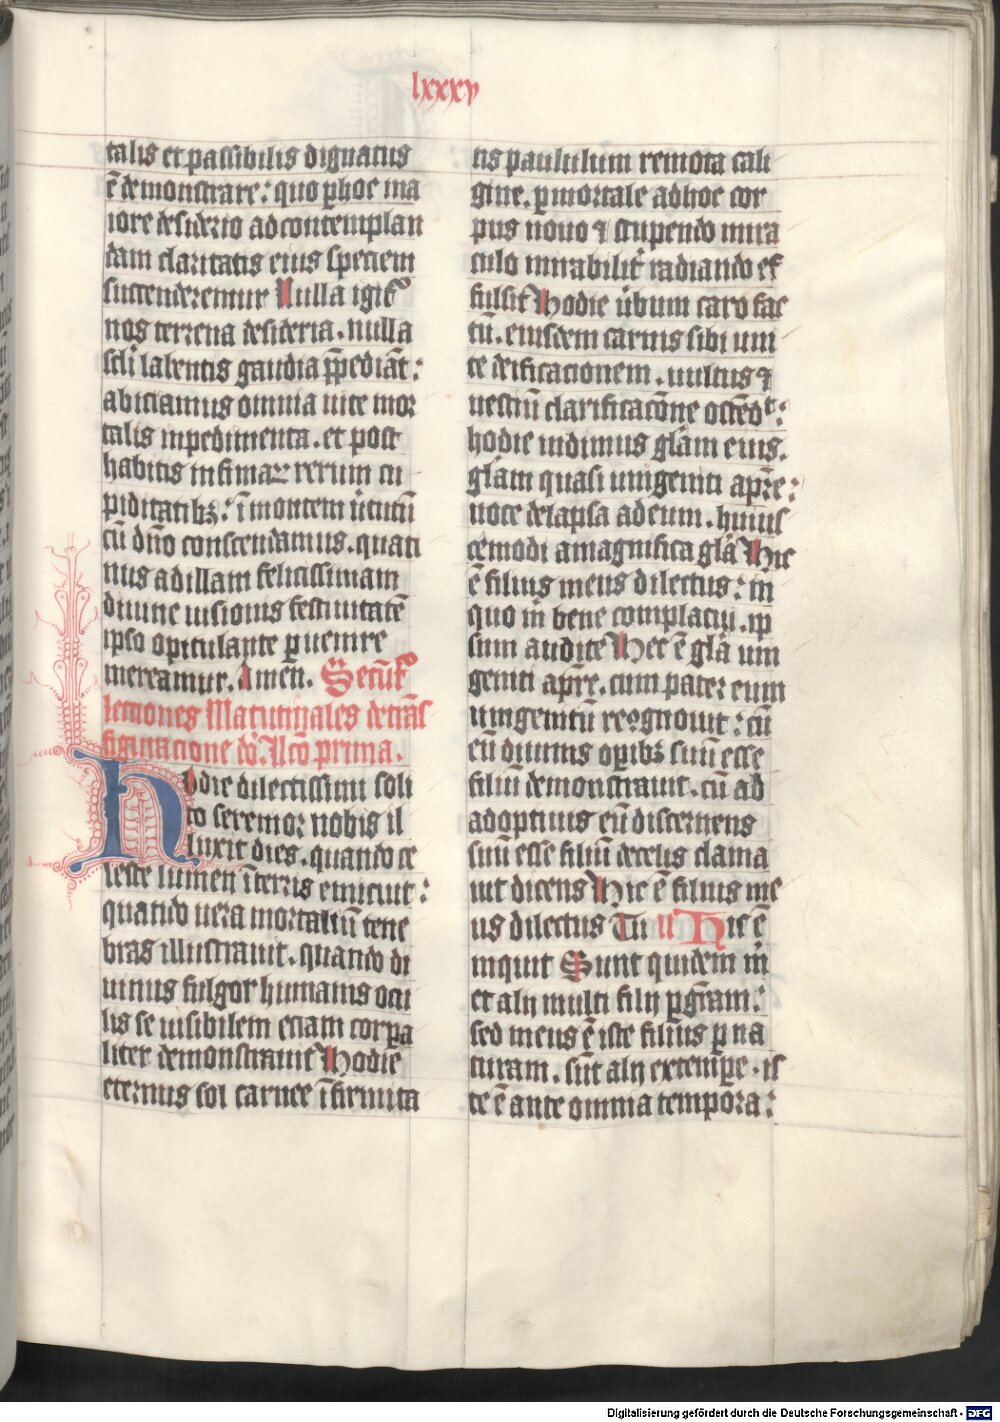 lxxxv
talis et passibilis dignatus
ē demonstrare: quo ꝑ hoc ma
iore desiderio ad contemplan
dam claritatis eius speciem
succenderemur Nulla igit᷑
nos terrena desideria. nulla
sc̄li labentis gaudia p̄pediāt:
abiciamus omnia uite mor
talis inpedimenta. et post
habitis infimaꝝ rerum cu
piditatibꝫ: ī montem ūtutū
cū dn̄o conscendamus. quati
nus ad illam felicissimam
diuine uisionis festiuitatē
ipso opitulante ꝑuenire
mereamur. Amen. Secūt᷑
lectiones Matutinales de trās
figuracione dō. Lcō prima.
Hodie dilectissimi soli
to seremor nobis il
luxit dies. quando ce
leste lumen ī terris emicuit:
quando uera mortaliū tene
bras illustrauit. quando di
uinus fulgor humanis ocu
lis se uisibilem eciam corpa
liter demonstrauit Hodie
eternus sol carnee īfirmita
tis paululum remota cali
gine. ꝑ mortale adhoc cor
pus nouo ⁊ stupendo mira
culo mirabilit᷑ radiando ef
fulsit Hodie ūbum caro fac
tū. eiusdem carnis sibi uni
te deificacionem. uultus ⁊
uestiū clarificacōne ostēdᵗ:
hodie uidimus glām eius.
glām quasi unigeniti a pr̄e:
uoce delapsa ad eum. huius
cemodi a magnifica glā Hic
ē filius meus dilectus: in
quo m̄ bene complacui. ip
sum audite Hec ē glā uni
geniti a pr̄e. cum pater eum
unigenitū recognouit: cū
eū diuinis opibꝫ suū esse
filiū demonstrauit. cū ab
adoptiuis eū discernens
suū esse filiū de celis clama
uit dicens Hic ē filius me
us dilectus Tu ij Hic ē
inquit Sunt quidem m̄
et alij multi filij ꝑ grām:
sed meus ē iste filius ꝑ na
turam. sūt alij ex tempe. is
te ē ante omnia tempora:
Digitalisierung gefördert durch die Deutsche Forschungsgemeinschaft - DFG